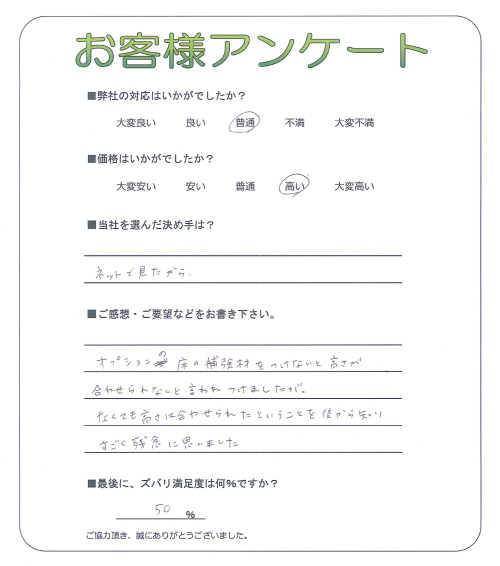 お客様アンケート
■弊社の対応はいかがでしたか?
大変良い 良い 普通 不満 大変不満
■価格はいかがでしたか?
大変安い 安い 普通 高い 大変高い
■当社を選んだ決め手は?
ネットで見たから.
■ご感想・ご要望などをお書き下さい。
オプションの床の補強材をつけないと高さが
合わせられないと言われつけましたが。
なくても高さは合わせられたということを後から知り
すごく残念に思いました
■最後に、ズバリ満足度は何%ですか?
50 %
ご協力頂き、誠にありがとうございました。